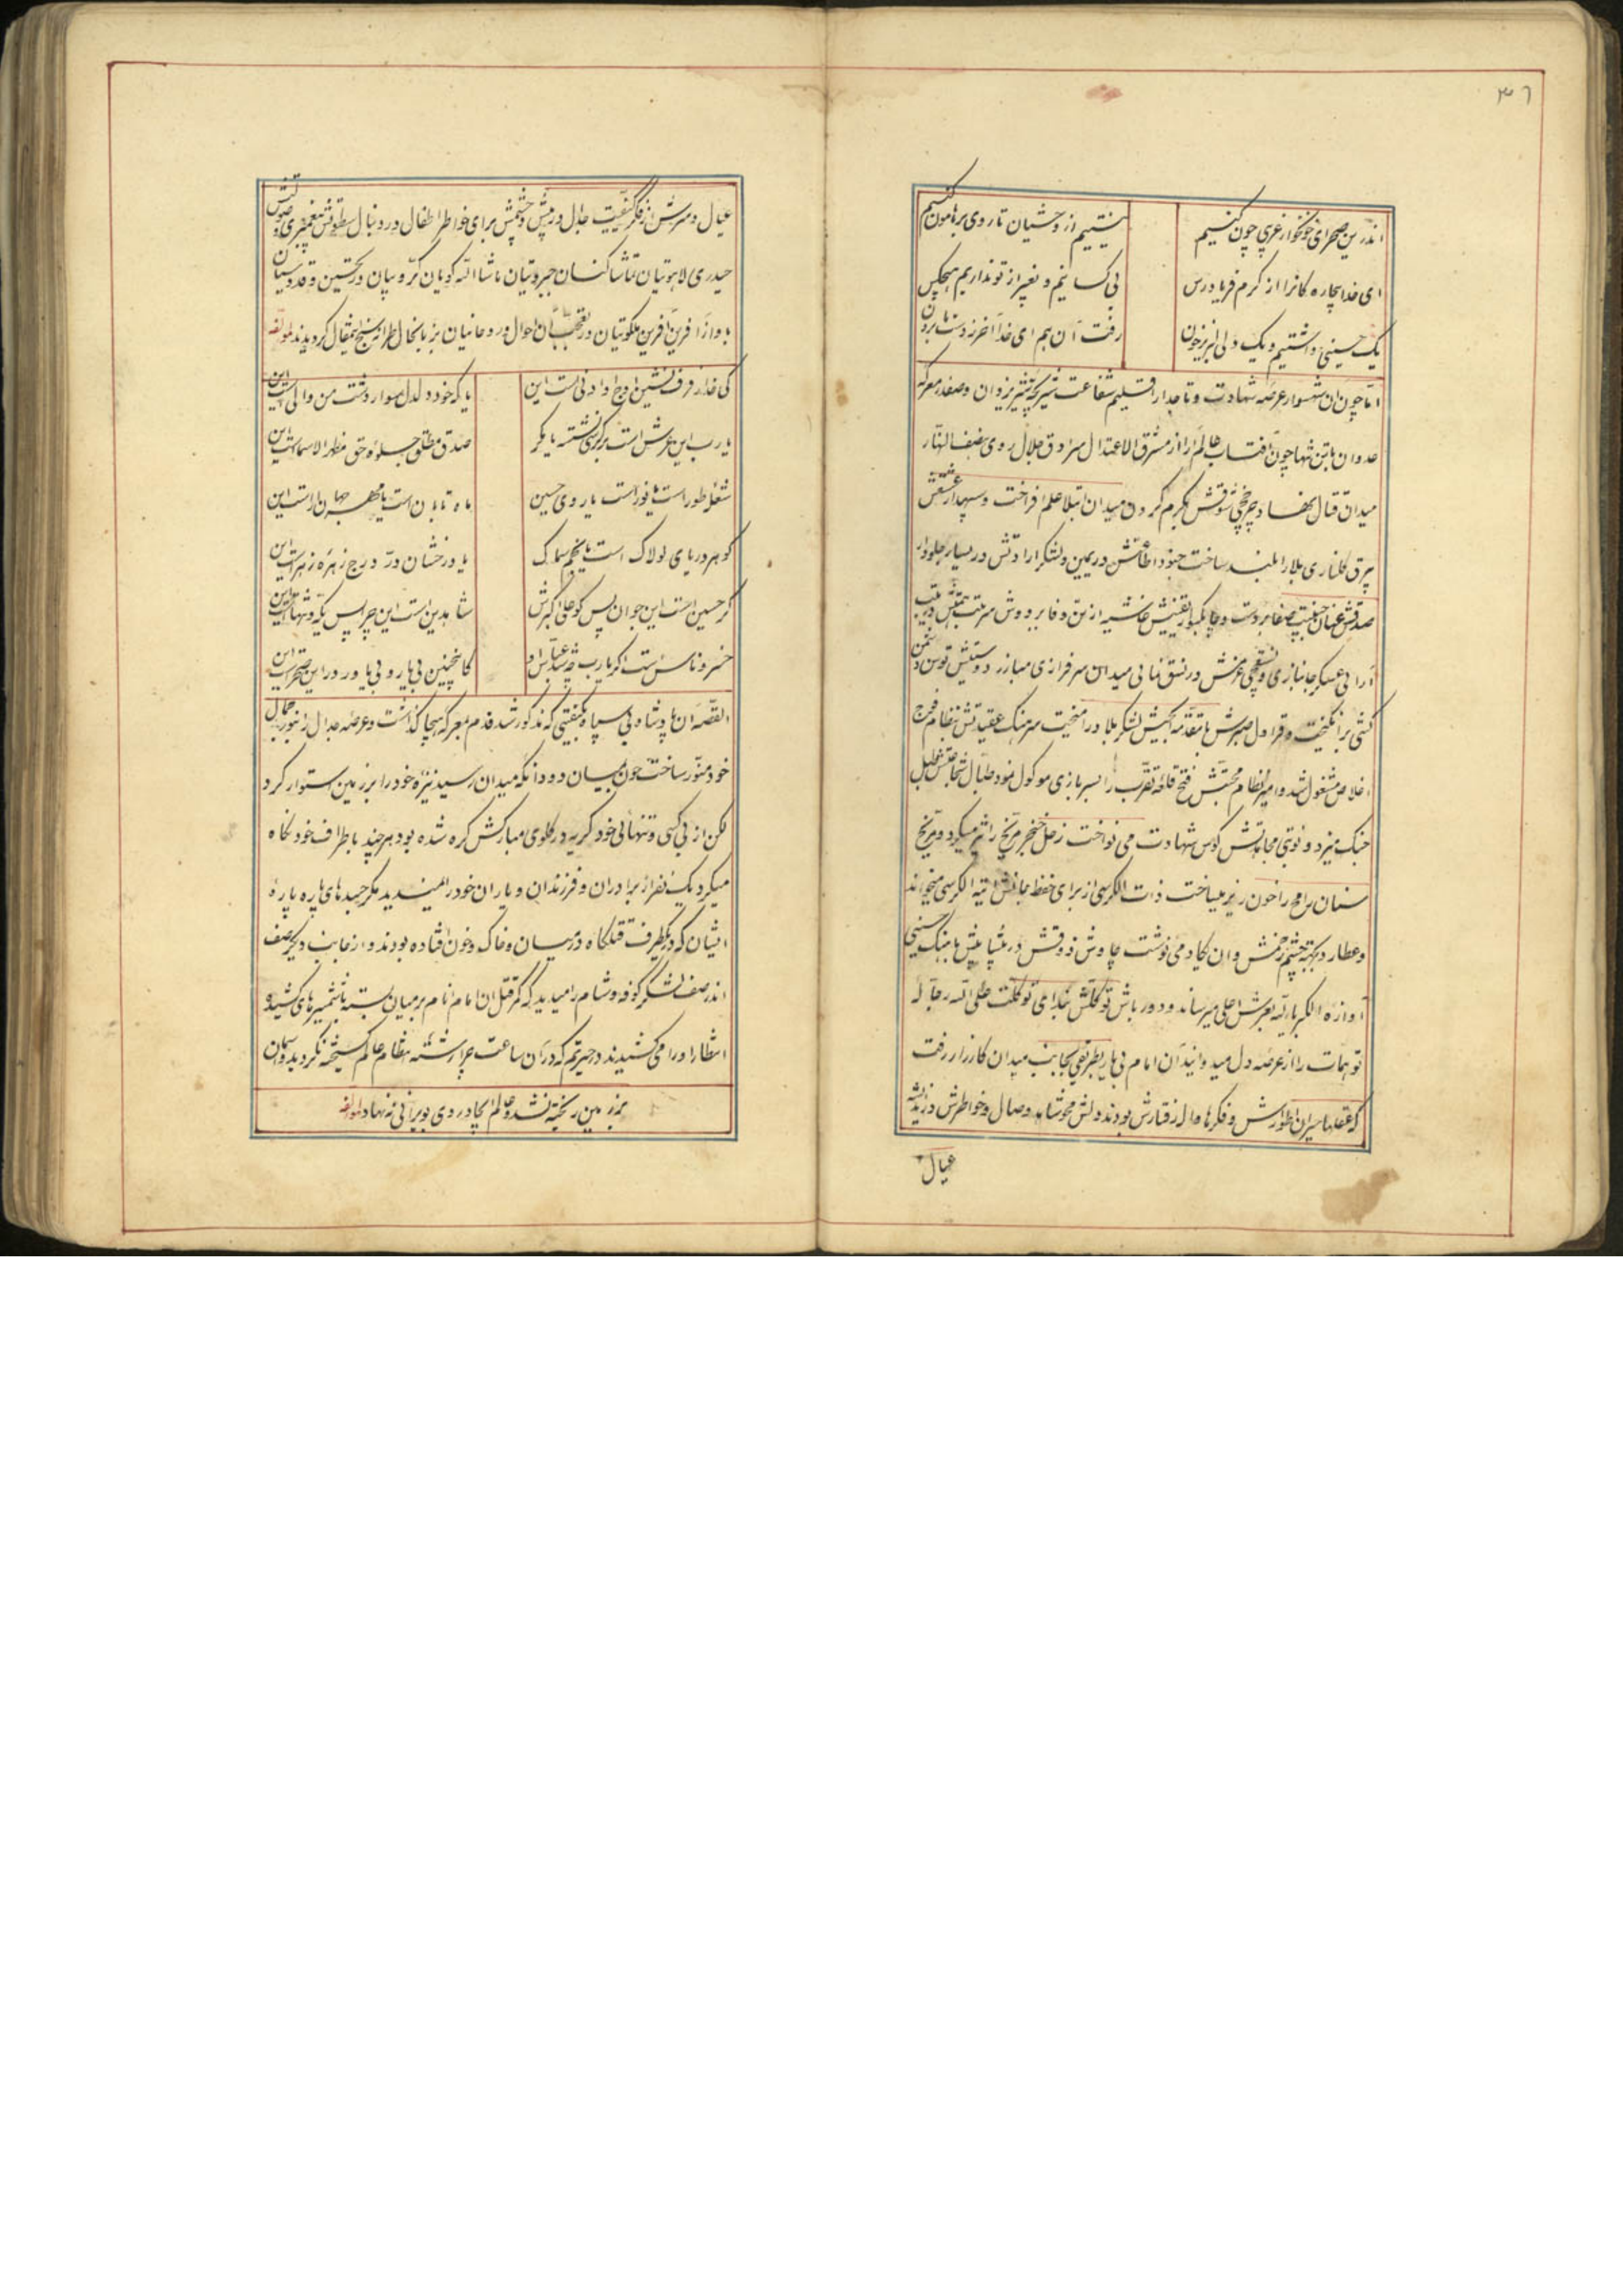 ۳٦
اندرین صحرای خونخوار غریبی چون کنیم
نیستیم از وحشیان تا روی بر هامون کنیم
ای خدا بیچاره کانرا از کرم فریادرس
بی کسانیم و بغیر از تو نداریم هیچکس
یک حسینی داشتیم و یک دلی لبریز خون
رفت آن هم ای خدا آخر ز دست ما برون
اما چون آن شهسوار عرصه شهادت و تاجدار اقلیم شفاعت شیر بیشه یزدان و صفدر معرکه
عدوان با تن تنها چون آفتاب عالم آرا از مشرق الاعتدال سرادق جلال روی نصف النهار
میدان قتال نهاد چرخچی شوقش بگرم کردن میدان ابتلا علم افراخت و سپهدار عشقش
بیرق گلناری بلا را بلند ساخت جنود اطاعتش در یمین و لشکر ارادتش در یسار جلودار
صدقش عنان جنیبت صفا بر دست و چابکسوار یقینش غاشیه از وفا بر دوش
آرائی عسکر جانبازی و نسقچی عزمش در نسق نمائی میدان سرفرازی مبارز دوستیش توسن
کشی برانگیخت و قراول صبرش با مقدمه الجیش لشکر بلا در آمیخت سرهنگ عقیدتش بنظام فوج
اخلاص مشغول شد و امیر نظام محبتش فتح قلعه تقرب را بسربازی موکول نمود طبال شجاعتش طبل
جنگ میزد و نوبتی مجاهدتش کوس شهادت می نواخت زحل خنجر مریخ را تیز میکرد و مریخ
سنان رامح را خون ریز میساخت ذات الکرسی از برای حفظ جانش آیه الکرسی میخواند
و عطارد بجهته چشم زخمش وان یکاد می نوشت چاوش ذوقش در پیشاپیش باهنگ حسینی
آوازه الکبریاء لله بعرش اعلی میرساند و دور باش توکلش بندای توکلت علی الله رجاله
توهمات را از عرصه دل میدوانید آن امام بی یار بطریقی بجانب میدان کارزار رفت
که عقلها حیران اطوارش و فکرها واله رفتارش بودند دلش محو شاهد وصال و خواطرش در اندیشه
عیال
عیال و سرش از فکر کیفیت جدال در پیش و چشمش برای خواطر اطفال در دنبال سطوتش پیغمبری و صولتش
حیدری لاهوتیان تماشا کنان جبروتیان ماشاالله گویان کروبیان در تحسین و قدوسیان
باواز آفرین آفرین ملکوتیان در تعجب آن احوال و روحانیان بزبانحال طراز سنج این مقال گردیدند لمؤلفه
کی خدا رفرف نشین اوج او ادنی است این
یا که خود دلدل سوار دشت من والی است این
یا رب این عرش است بر کرسی نشسته یا مگر
صدق مطلق جلوه حق مظهر الاسماست این
شعل طور است یا نور است یا روی حسین
ماه تابان است یا مهر جهان آراست این
گوهر دریای لولاک است یا نجم سماک
یا درخشان در درج زهره زهراست این
گر حسین است این جوان پس کو علی اکبرش
شاهدین است این چرا پس یکه و تنهاست این
خسرو ناس است اگر یا رب چه شد عباس او
کاینچنین بی یار و بی یاور در این صحراست این
القصه آن پادشاه بی سپاه بکیفیتی که مذکور شد قدم بمعرکه هیجا گذاشت و عرصه جدال را بنور جمال
خود منور ساخت چون بمیان دو دانگه میدان رسید نیزه خود را بر زمین استوار کرد
لکن از بی کسی و تنهائی خود گریه در گلوی مبارکش گره شده بود هر چند باطراف خود نگاه
میکرد یک نفر از برادران و فرزندان و یاران خود را نمیدید مگر جسدهای پاره پاره
ایشان که در یکطرف قتلگاه در میان خاک و خون افتاده بودند و از جانب دیگر صف
اندر صف لشکر کوفه و شام را میدید که کمر قتل آن امام انام بر میان بسته با شمشیرهای کشیده
انتظار او را می کشیدند در حیرتم که در آن ساعت چرا رشته نظام عالم گسیخته نگردید و آسمان
بر زمین ریخته نشد و عالم ایجاد روی بویرانی ننهاد لمؤلفه